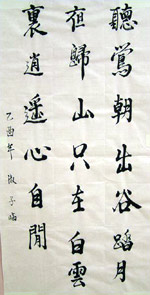 聽鶯朝出谷踏月
亱歸山只在白雲
裏逍遥心自閒
乙酉年